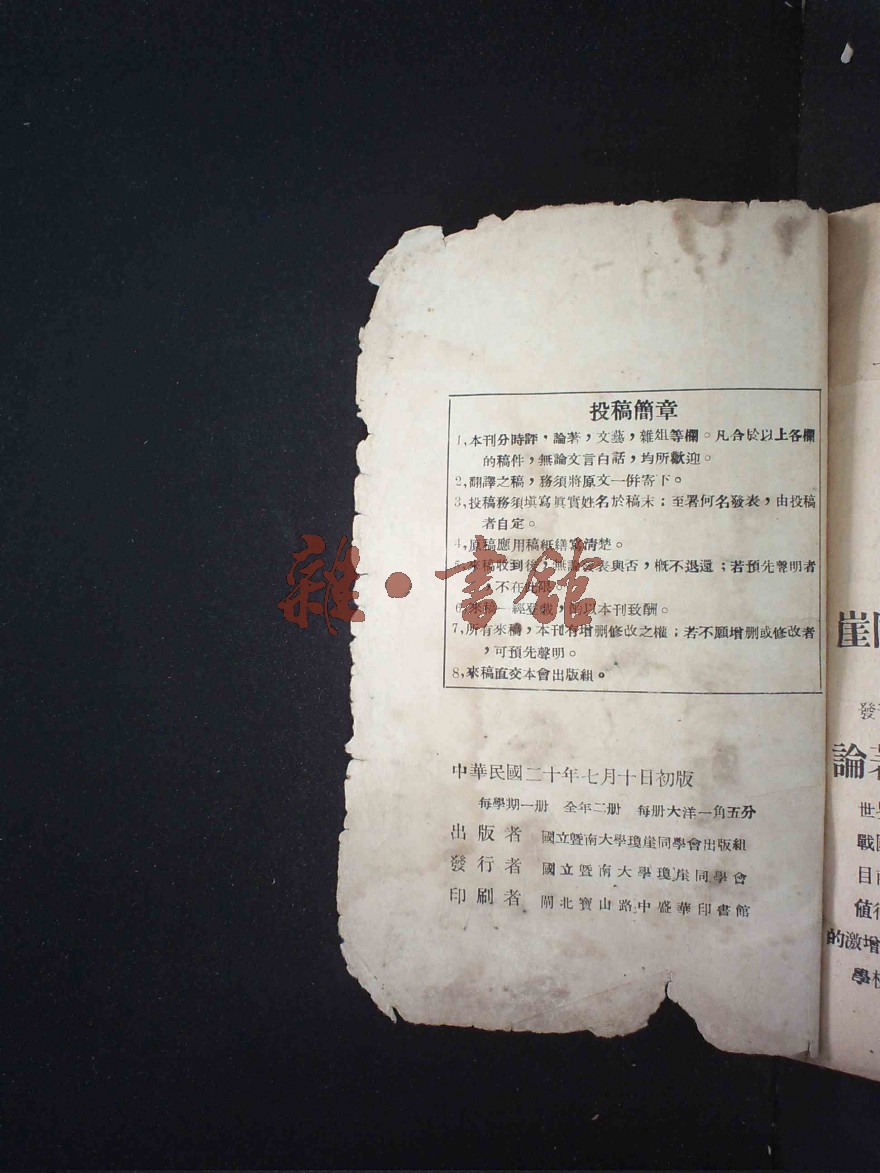 投稿簡章
1,本刊分時評,論著,文藝,雜俎等欄。凡合於以上各欄
的稿件,無論文言白話,均所歡迎。
2,翻譯之稿,務須將原文一併寄下。
3,投稿務須填寫眞實姓名於稿末;至署何名發表,由投稿
者自定。
4,原稿應用稿紙繕寫清楚。
5,來稿收到後,無論發表與否,槪不退還;若預先聲明者
,不在此限。
6,來稿一經登載,即以本刊致酬。
7,所有來稿,本刊有增删修改之權;若不願增删或修改者
,可預先聲明。
8,來稿直交本會出版組。
中華民國二十年七月十日初版
每學期一册 全年二册 每册大洋一角五分
出版者 國立暨南大學瓊崖同學會出版組
發行者 國立暨南大學瓊崖同學會
印刷者 閘北寶山路中盛華印書館
雜·書館
崖
發
論著
世
戰
目
値
的激增
學